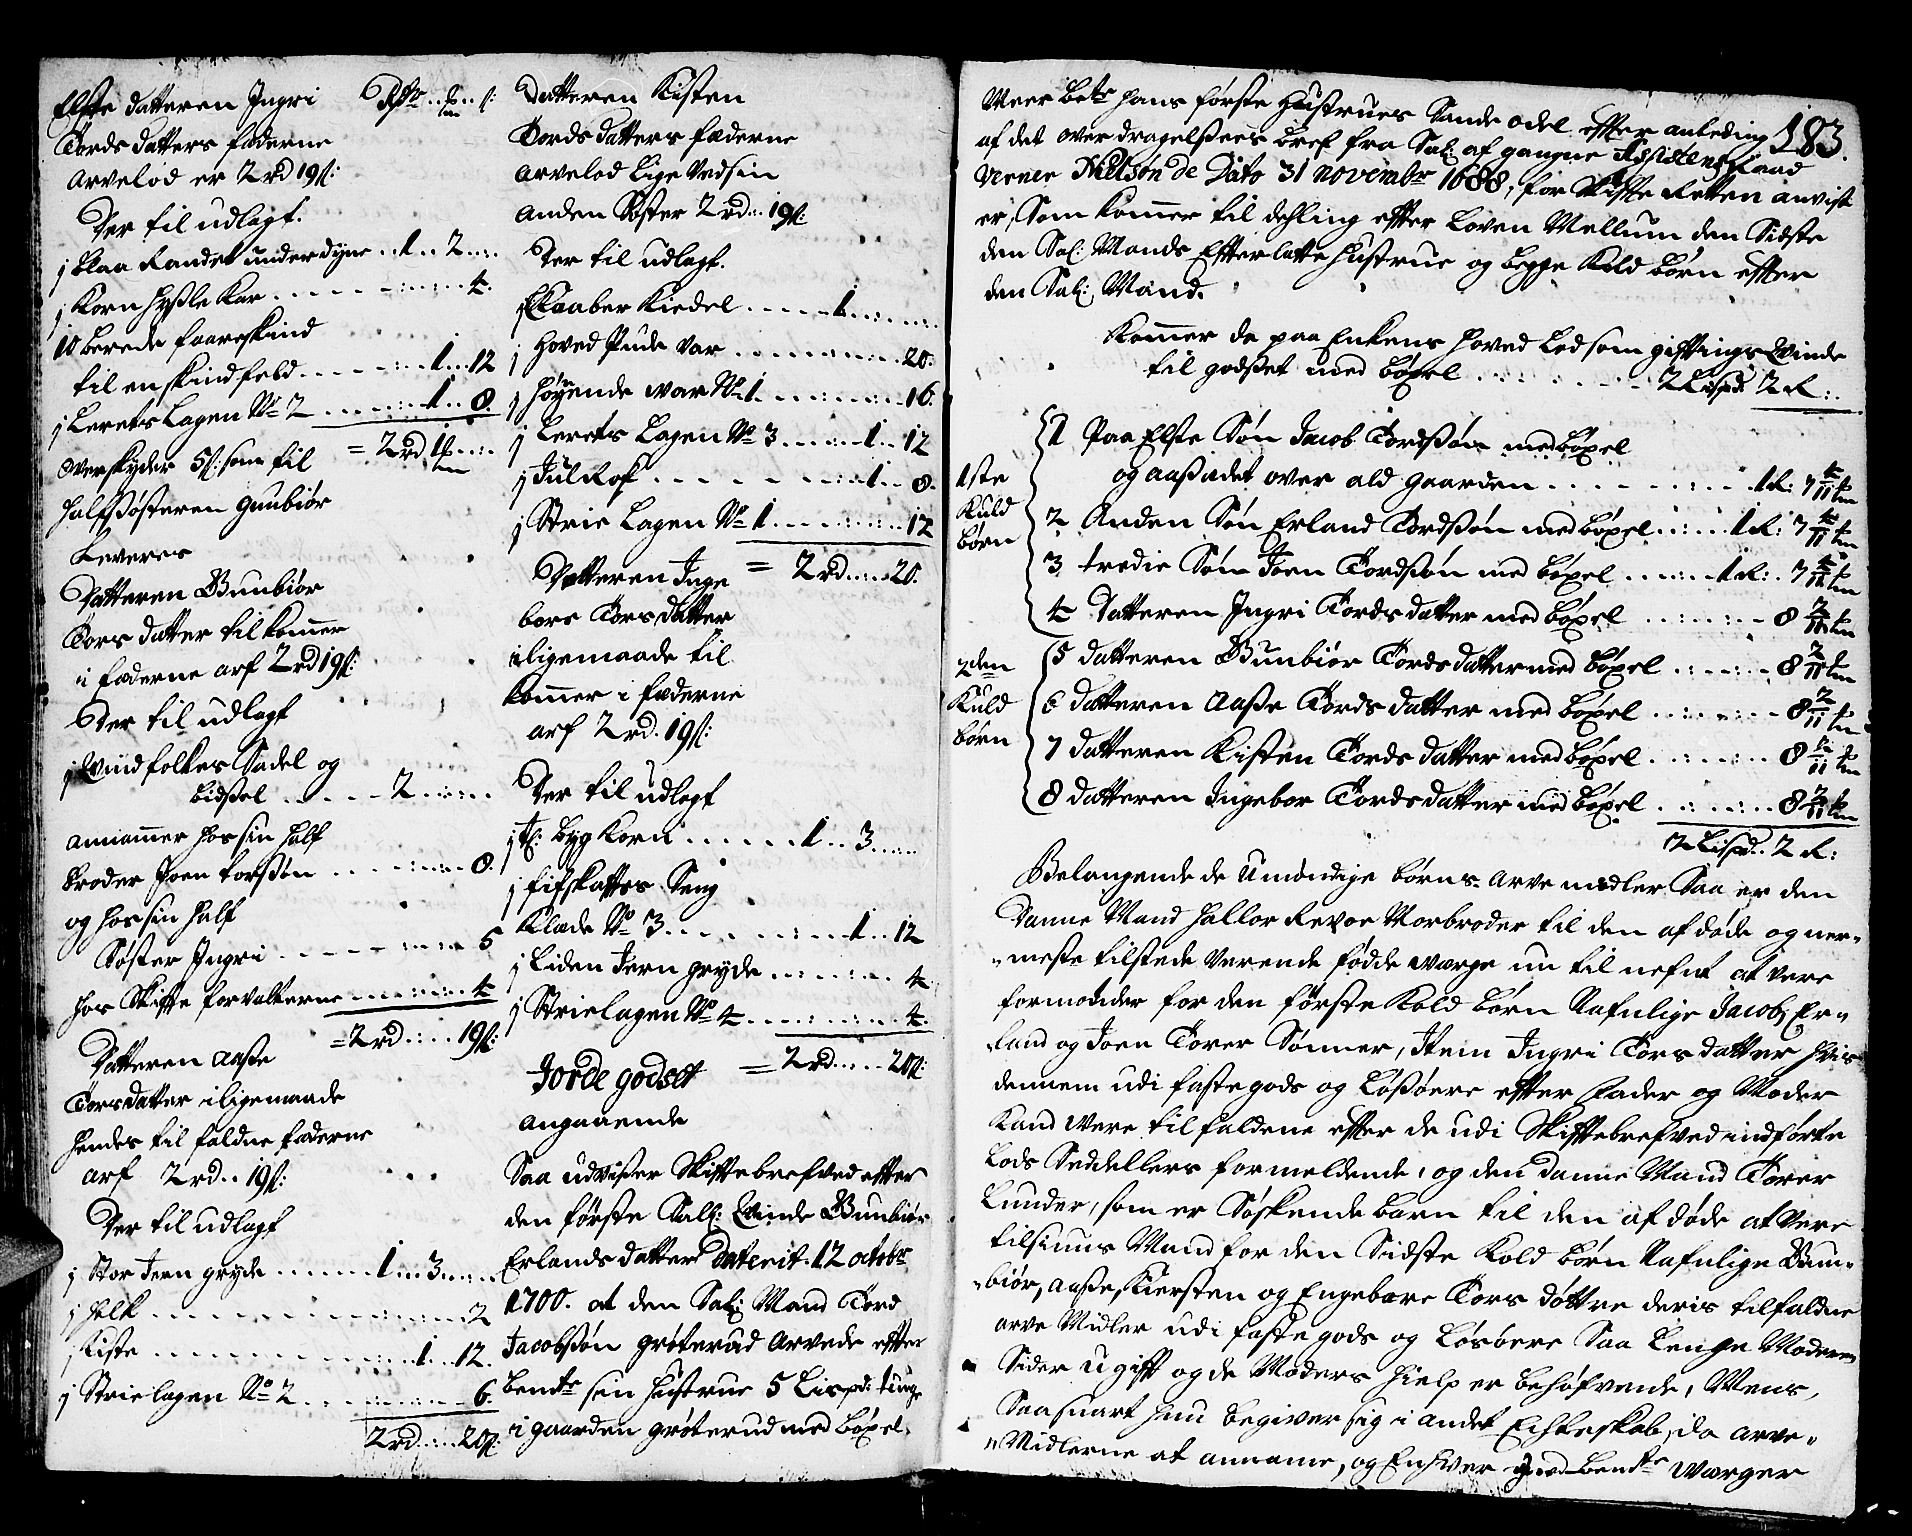 Elste datteren Ingri Rdr
Tordsdatters fæderne
Arvelod er 2rd 19s:
Der til udlagt.
j blaa Randet underdyne 1 2
j Korn Hyßle Kar 4.
10 berede faareskind
til en skindfeld 1 12
j Lerets Lagen No 2 1 8.
= 2rd 1
overskyder 5s: som til
halfsøsteren Gunbiør
Leveres
Datteren Gunbiør
Torsdatter til kommer
i fæderne arf 2rd 19s:
Der til udlagt
j Qvindfolkes Sadel og
bidßel 2
annammer hos sin half
broder Joen torßøn 8.
og hos sin half
Søster Ingri 5
hos Skifte forvalterne 4
= 2rd 19s:
Datteren Aaße
Torsdatter iligemaade
hendes til faldne fæderne
arf 2rd 19s:
Der til udlagt
j Stor Jern gryde 1 3
j Helk 2
j Kiste 1 12.
j Strie lagen No 2 6.
2rd 20s:
Datteren Kisten
Tordsdatters fæderne
Arvelod Lige ved sin
anden Søster 2rd 19s:
Der til udlagt.
j Kaaber Kiedel 1
j Hoved Pude var 20.
j Høyende war No 1 16.
j Lerets Lagen No 3 1 12
j Julrof 1 8.
j Strie Lagen No 1 12
= 2rd 20.
Datteren Inge
bore Torsdatter
iligemaade til
kommer i fæderne
arf 2rd 19s:
Der til udlagt
j t: byg Korn 1 3
j fifskaftes Seng
Klæde No 3 1 12
j Liden Jern gryde 4
j Strielagen No 4 4
= 2rd 20s:
Jorde godset
angaaende
Saa udvißer Skiftebrefved efter
den første Sal: Qvinde Gunbiør
Erlandsdatter Daterit 12 octobr
1700. at den Sal: Mand Tord
Jacobßøn grøterud arvede efter
bente sin Hustrue 5 Lispd: tunge
i gaarden grøterud med bøxel.
183.
Meer bete hans første Hustrues Sande odel efter anleding
af det overdragelßees bref fra Sal: afgangne Assistentz Raad
Verner Nielsøn de Dato 31 novembr 1688, for Skifte Retten anvist
er, Som kommer til dehling efter Loven Mellum den Sidste
den Sal: Mands Efterlatte Hustrue og begge Kuld børn efter
den Sal: Mand.
Kommer da paa Enkens hoved Lod som giftings Qvinde
til godßet med bøxel 2 Lispd. 2 R:
1ste
Kuld
børn
1 Paa Elste Søn Jacob Tordßøn med bøxel
og aaßædet over ald gaarden 1 R: 7 4/11
2 Anden Søn Erland Tordßøn med bøxel 1 R: 7 4/11
3 tredie Søn Joen Tordßøn med bøxel 1 R: 7 4/11
4 Datteren Ingri Tordsdatter med bøxel 8 2/11
2den
Kuld
børn
5 datteren Gunbiør Tordsdatter med bøxel 8 2/11
6 datteren Aaße Tordsdatter med bøxel 8 2/11
7 datteren Kisten Tordsdatter med bøxel 8 2/11
8 datteren Ingebor Tordsdatter med bøxel 8 2/11
2 Lispd. 2 R:
Belangende de Umöndige børns arve midler Saa er den
Danne Mand Hallor Revoe Morbroder til den afdøde og ner-
meste tilstede Verende fødde werge nu til nefnt at vere
formönder for den første Kold børn Nafnlige Jacob, Er-
land og Joen Torer Sønner, Item Ingri Torsdatter hvis
dennem udi faste gods og Løßøere efter fader og Moder
Kand were tilfaldene efter de udi Skiftebrefved indførte
Lods Seddellers formeldende, og den danne Mand Torer
Lunder, som er Søskende barn til den afdøde at Vere
tilsiuns Mand for den Sidste Kold børn Nafnlige Gun-
biør, Aaße, Kiersten og Engebore Tors døttre deris tilfaldne
arve Midler udi faste gods og Løsøere Saa Lenge Moderen
Sider ugift og de Moders hielp er behøfvende, Mens,
Saa snart hun begiver sig i andet Echteskab, da arve-
Midlerne at anname, og Enhver werger